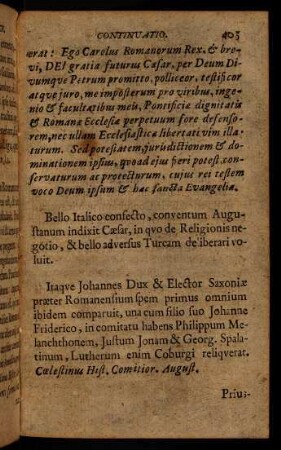 CONTINUATIO. 403
erat: Ego Carolus Romanorum Rex, & bre-
vi, DEI gratia futurus Cæsar, per Deum Di-
vumqve Petrum promitto, polliceor, testificor
atqve juro, me imposterum pro viribus, inge-
nio & facultatibus meis, Pontificiæ dignitatis
& Romanæ Ecclesiæ perpetuum fore defenso-
rem, nec ullam Ecclesiasticæ libertati vim illa-
turum. Sed potestatem, jurisdictionem & do-
minationem ipsius, qvoad ejus fieri potest, con-
servaturum ac protecturum, cujus rei testem
voco Deum ipsum & hæc sancta Evangelia.
Bello Italico confecto, conventum Augu-
stanum indixit Cæsar, in qvo de Religionis ne-
gotio, & bello adversus Turcam deliberari vo-
luit.
Itaqve Johannes Dux & Elector Saxoniæ
præter Romanensium spem primus omnium
ibidem comparuit, una cum filio suo Johanne
Friderico, in comitatu habens Philippum Me-
lanchthonem, Justum Jonam & Georg. Spala-
tinum, Lutherum enim Coburgi reliqverat.
Cælestinus Hist. Comitior. August.
Prius-